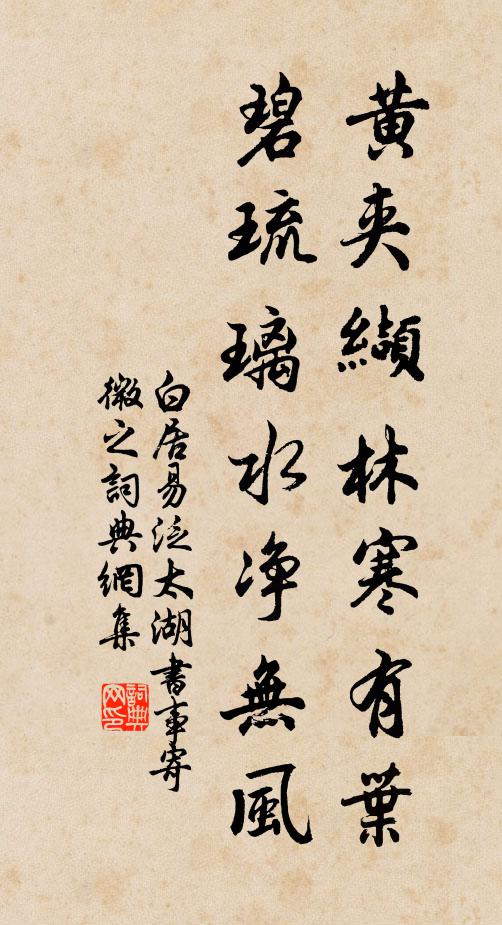 黃夾纈林寒有葉
碧琉璃水净無風
白居易泛太湖書事寄
微之詞典網集
詞典網印